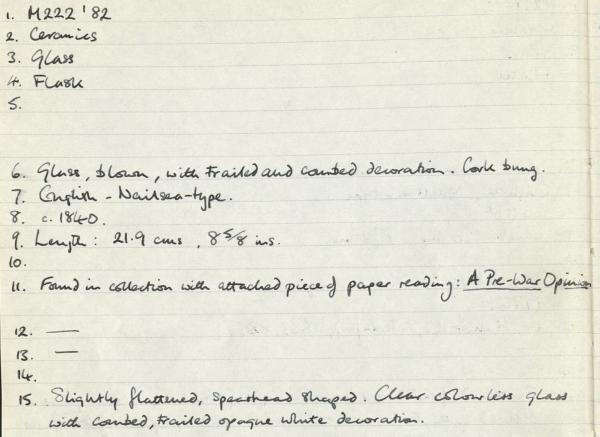 1. M222 '82
2. Ceramics
3. Glass
4. Flask
5.
6. Glass, blown, with trailed and combed decoration. Cork bung.
7. English - Nailsea-type.
8. c. 1840.
9. Length: 21.9 cms, 8 5/8 ins.
10.
11. Found in collection with attached piece of paper reading: A Pre-War Opinion
12. —
13. —
14.
15. Slightly flattened, spearhead shaped. Clear colourless glass
with combed, trailed opaque white decoration.